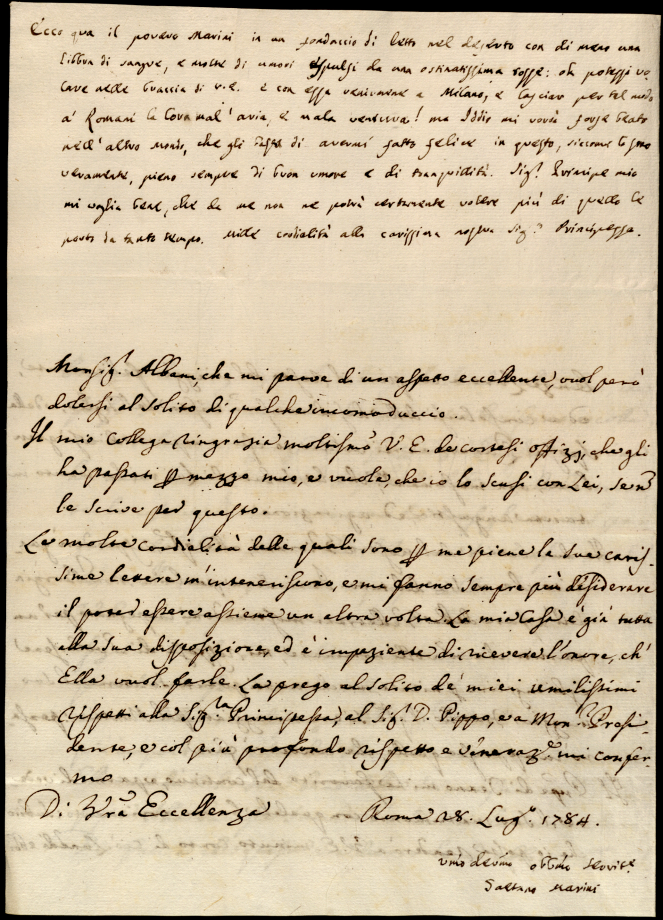 Ecco qua il povero Marini in un fondaccio di letto nel deserto con di meno una
libbra di sangue, e molte di umori espulsi da una ostinatissima tosse: oh potessi vo
lare nelle braccia di V.E. e con essa venirmene a Milano, e lasciar per tal modo
a' Romani la loro mal' aria, e mala ventura! ma Iddio mi vorrà forse beato
nell' altro Mondo, che gli basta di avermi fatto felice in questo, siccome lo sono
veramente, pieno sempre di buon umore e di tranquillità. Sig.r Principe mio
mi voglia bene, che da me non ne potrà certamente volere più di quello le
porto da tanto tempo. Mille cordialità alla carissima nostra Sig.a Principessa.
Monsig.r Albani, che mi parve di un aspetto eccellente, vuol però
dolersi al solito di qualche incomoduccio.
Il mio Collega ringrazia moltismo V. E. de cortesi offizj, che gli
ha passati p mezzo mio, e vuole, che io lo scusi con Lei, se nō
le scrive per questo.
Le molte cordialità delle quali sono p me piene la sue caris-
sime lettere m'inteneriscono, e mi fanno sempre più desiderare
il poter essere assieme un altra volta. La mia Casa è già tutta
alla sua disposizione, ed è impaziente di ricevere l'onore, ch'
Ella vuol farle. La prego al solito de' miei umilissimi
rispetti alla Sig.ra Principessa, al Sig.r D. Pippo, e a Mon.r Presi-
dente, e col più profondo rispetto e venerazne. mi confer-
mo
Di Vrã Eccellenza Roma 28. Lugo. 1784.
Umo devmo obbmo servitre.
Gaetano Marini